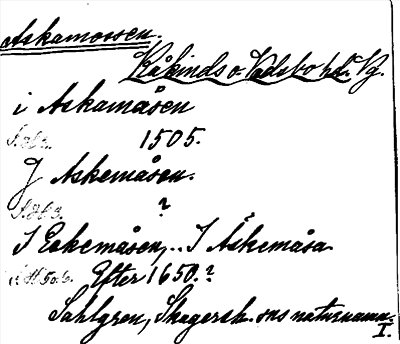 Askamossen.
Kåkinds o. Vadsbo hd. Vg.
i Askamåsen
1505.
J Askemåsen.
?
J Eskemåsen, .. J Åskemåsa
Efter 1650.?
Sahlgren, Skagersh. sns naturnamn.
I.